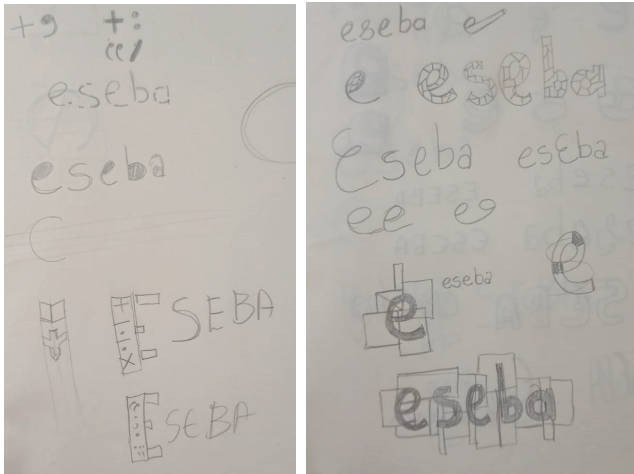 +9 +:
eseba
eseba
ESEBA
ESEBA
eseba e
e eseba
Eseba esEba
ee ee
e eseba e
eseba